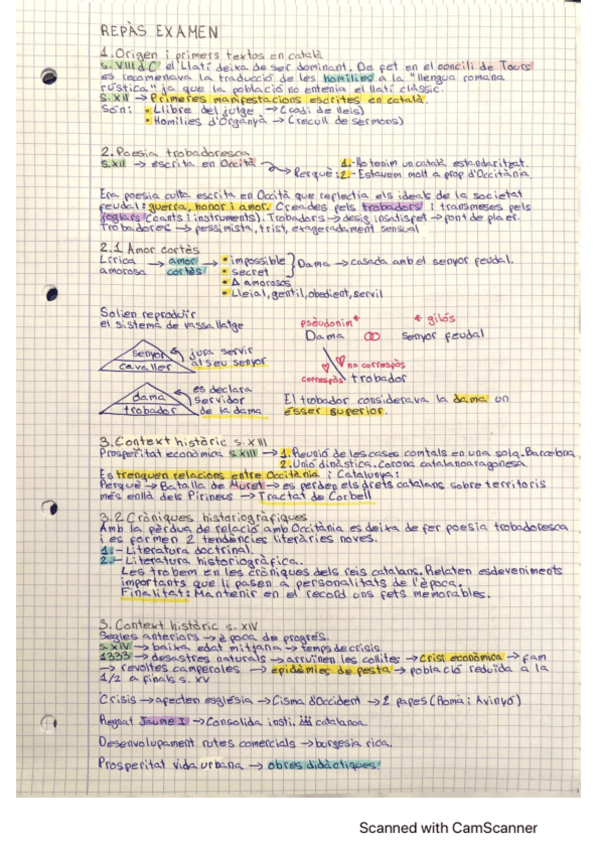 REPÀS EXAMEN
1. Origen i primers textos en català
s. VIII d.C el Llatí deixa de ser dominant. De fet en el concili de Tours
es recomenava la traducció de les homilies a la "llengua romana
rústica" ja que la població no entenia el llatí clàssic.
s. XII → Primeres manifestacions escrites en català.
Són: • Llibre del jutge → (codi de lleis)
• Homilies d'Organyà → (recull de sermons)
2. Poesia trobadoresca
s. XII → escrita en Occità
Perquè:
1.- No tenim un català estandaritzat.
2.- Estavem molt a prop d'Occitània
Era poesia culta escrita en Occità que reflectia els ideals de la societat
feudal: guerra, honor i amor. Creades pels trobadors i transmeses pels
joglars (cants i instruments). Trobadors → desig insdispet → pont de plaer.
Trobadores → pessimista, trist, exageradament sensual
2.1 Amor cortès
Lírica amorosa → amor cortès
• impossible
• secret
Dama → casada amb el senyor feudal.
• Δ amorosos
• Lleial, gentil, obedient, servil
Solien reproduir
el sistema de vassallatge
senyor
cavaller
jura servir
al seu senyor
dama
trobador
es declara
servidor
de la dama
pseudònim
gilós
Dama
senyor feudal
no correspòs
correspòs
trobador
El trobador considerava la dama un
ésser superior.
3. Context històric s. XIII
Prosperitat econòmica s. XIII → 1. Reunió de les cases comtals en una sola. Barcelona
2. Unió dinàstica. Corona catalanoaragonesa
Es trenquen relacions entre Occitània i Catalunya:
Perquè → Batalla de Muret → es perden els drets catalans sobre territoris
més enllà dels Pirineus → Tractat de Corbell
3.2 Cròniques historiogràfiques
Amb la pèrdua de relació amb Occitània es deixa de fer poesia trobadoresca
i es formen 2 tendències literàries noves.
1.- Literatura doctrinal.
2.- Literatura historiogràfica.
Les trobem en les cròniques dels reis catalans. Relaten esdeveniments
importants que li pasen a personalitats de l'època.
Finalitat: Mantenir en el record uns fets memorables.
3. Context històric s. XIV
Segles anteriors → època de progrés.
s. XIV → baixa edat mitjana → temps de crisis
1333 → desastres naturals → arruïnen les collites → Crisi econòmica → fam
→ revoltes camperoles → epidèmies de pesta → població reduïda a la
1/2 a finals s. XV
Crisis → afecten església → Cisma d'Occident → 2 papes (Roma i Avinyó)
Regnat Jaume I → Consolida insti. catalanoa.
Desenvolupament rutes comercials → burgesia rica.
Prosperitat vida urbana → obres didàctiques
Scanned with CamScanner